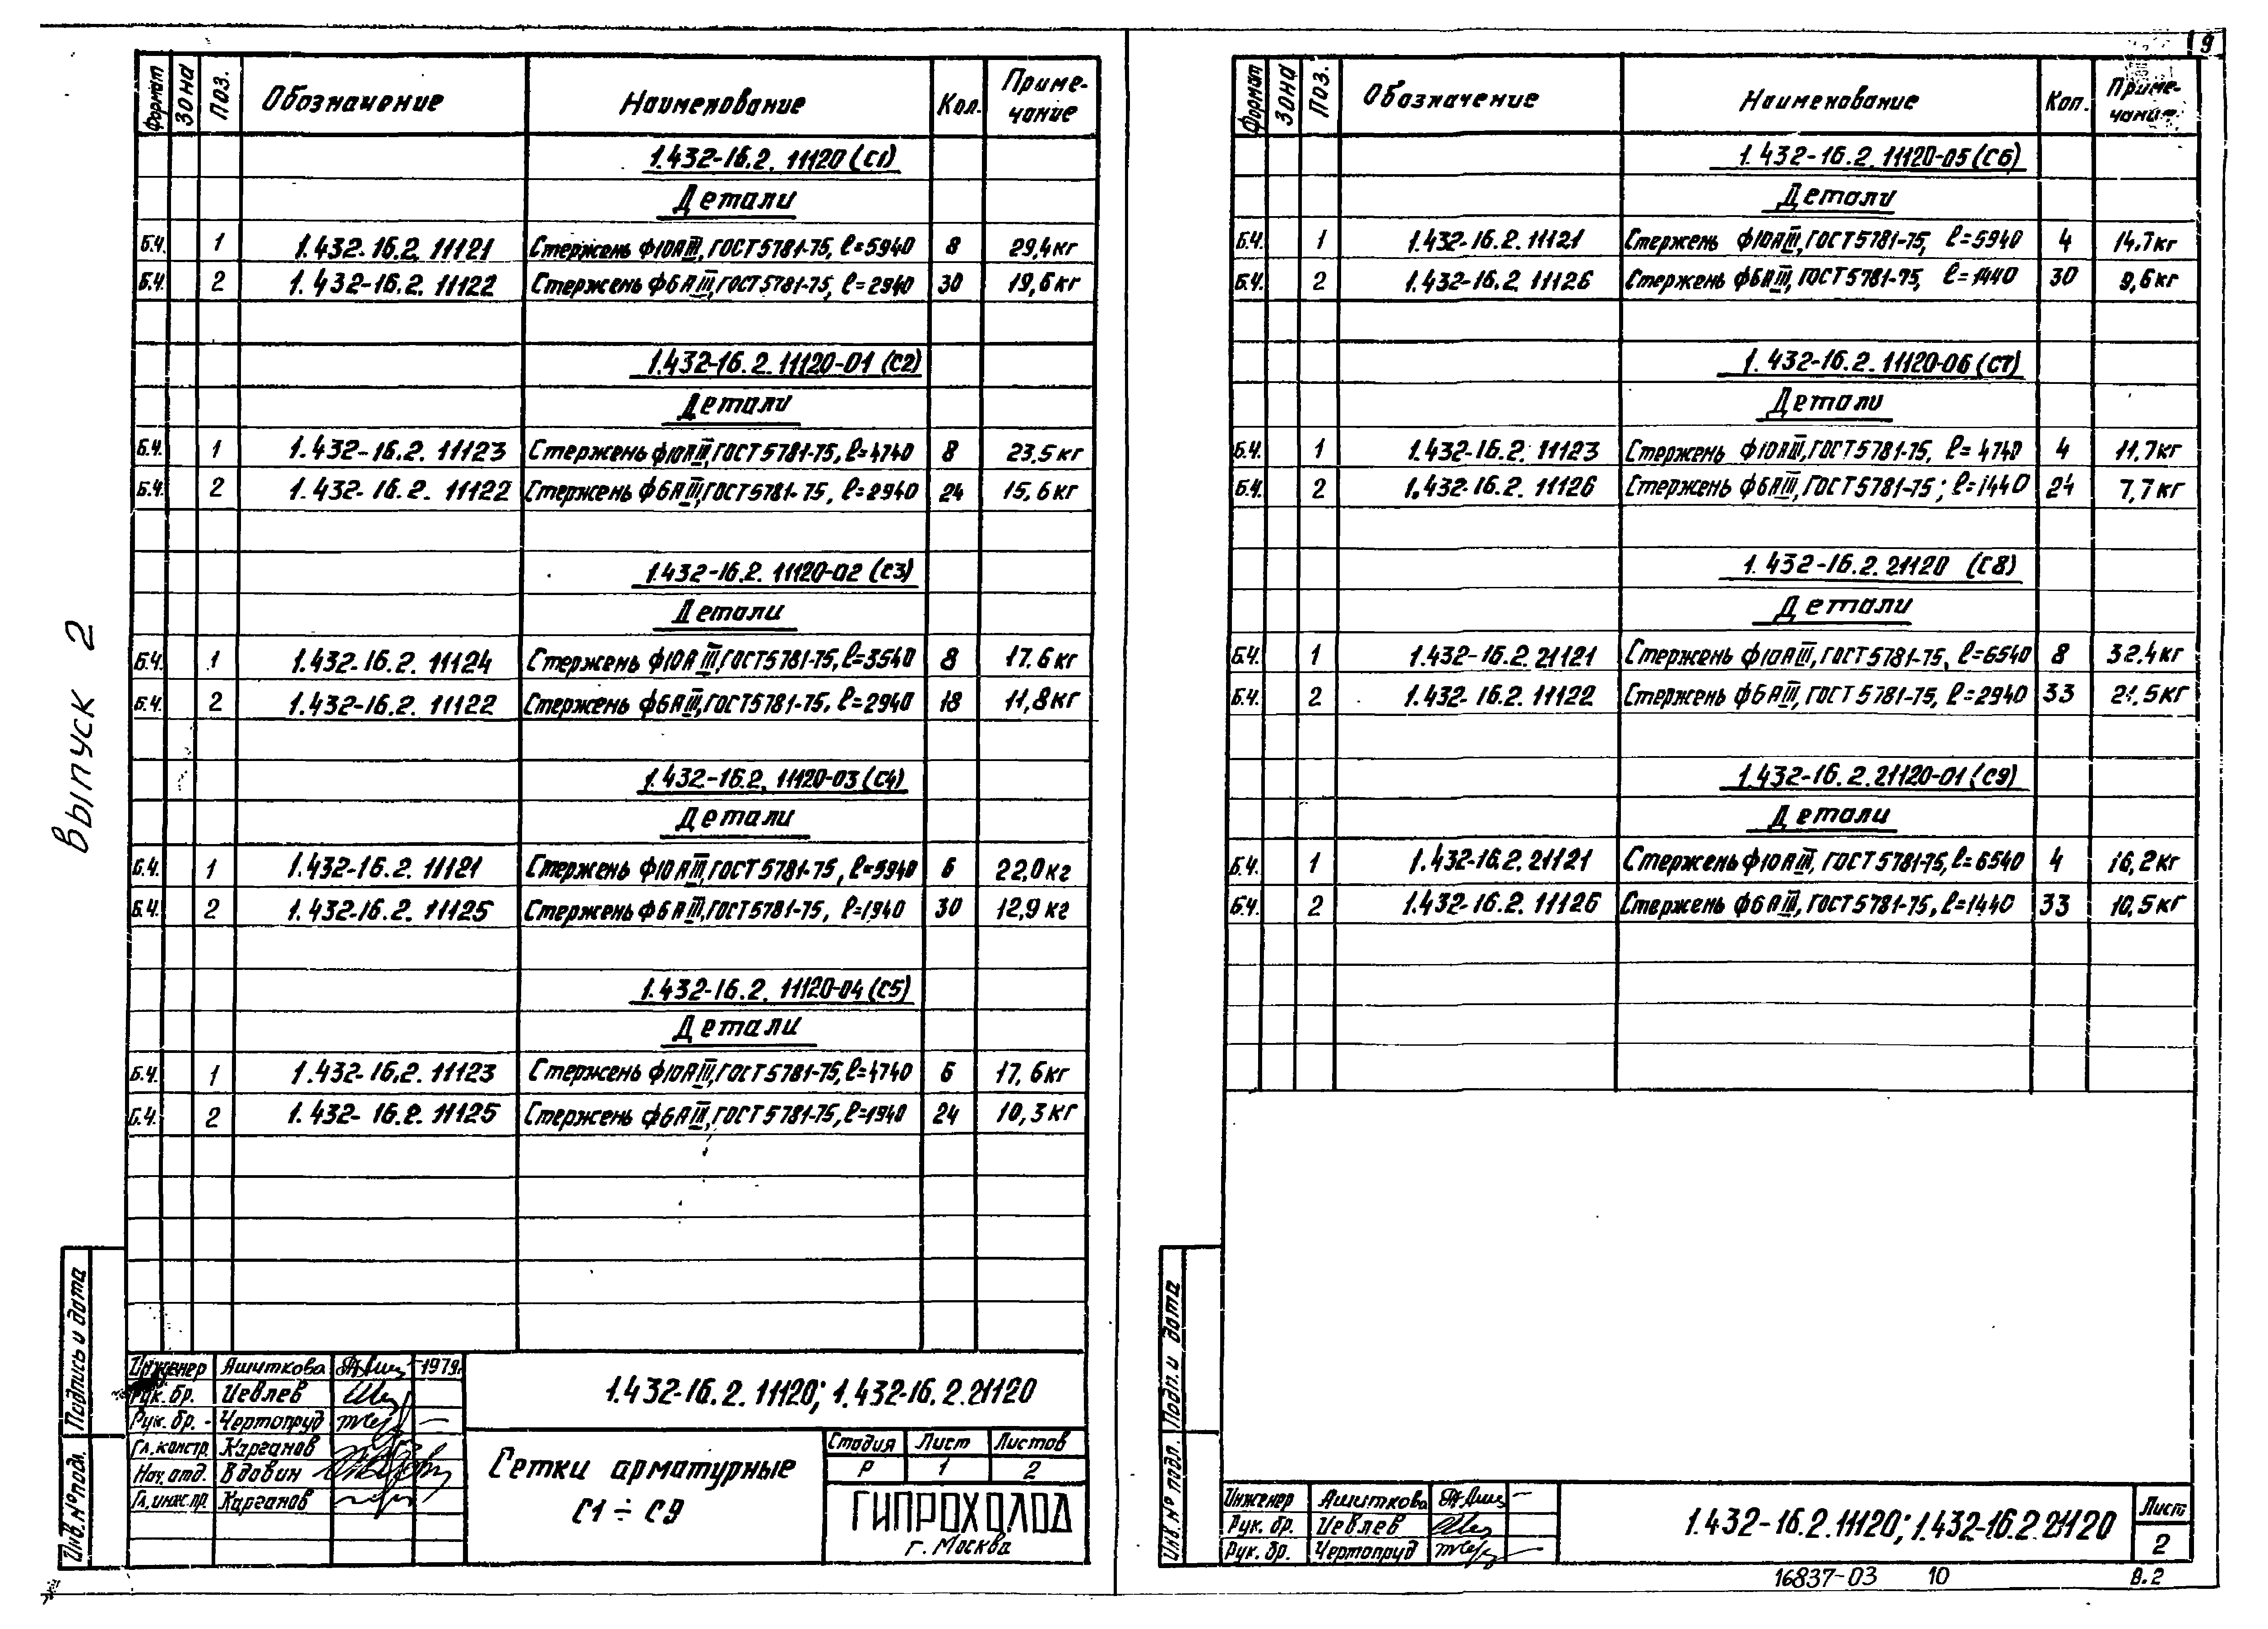 9
Выпуск 2
Формат Зона Поз. Обозначение Наименование Кол. Приме-
чание
1.432-16.2. 11120 (С1)
Детали
Б.Ч. 1 1.432-16.2. 11121 Стержень ф10АIII, ГОСТ 5781-75, ℓ=5940 8 29,4кг
Б.Ч. 2 1.432-16.2. 11122 Стержень ф6АIII, ГОСТ 5781-75, ℓ=2940 30 19,6кг
1.432-16.2. 11120-01 (С2)
Детали
Б.Ч. 1 1.432-16.2. 11123 Стержень ф10АIII, ГОСТ 5781-75, ℓ=4740 8 23.5кг
Б.Ч. 2 1.432-16.2. 11122 Стержень ф6АIII, ГОСТ 5781-75, ℓ=2940 24 15,6кг
1.432-16.2. 11120-02 (С3)
Детали
Б.Ч. 1 1.432-16.2. 11124 Стержень ф10АIII, ГОСТ 5781-75, ℓ=3540 8 17.6кг
Б.Ч. 2 1.432-16.2. 11122 Стержень ф6АIII, ГОСТ 5781-75, ℓ=2940 18 11,8кг
1.432-16.2. 11120-03 (С4)
Детали
Б.Ч. 1 1.432-16.2. 11121 Стержень ф10АIII, ГОСТ 5781-75, ℓ=5940 6 22,0кг
Б.Ч. 2 1.432-16.2. 11125 Стержень ф6АIII, ГОСТ 5781-75, ℓ=1940 30 12,9кг
1.432-16.2. 11120-04 (С5)
Детали
Б.Ч. 1 1.432-16.2. 11123 Стержень ф10АIII, ГОСТ 5781-75, ℓ=4740 6 17,6кг
Б.Ч. 2 1.432-16.2. 11125 Стержень ф6АIII, ГОСТ 5781-75, ℓ=1940 24 10,3кг
Подпись и дата
Инв. № подл.
Инженер Яшиткова 1979г.
Рук. бр. Иевлев
Рук. бр. Чертопруд
Гл. констр. Карганов
Нач. отд. Вдовин
Гл. инж. пр. Карганов
1.432-16.2. 11120; 1.432-16.2.21120
Сетки арматурные
С1 ÷ С9
Стадия Лист Листов
Р 1 2
ГИПРОХОЛОД
г. Москва
Формат Зона Поз. Обозначение Наименование Кол. Приме-
чание
1.432-16.2. 11120-05 (С6)
Детали
Б.Ч. 1 1.432-16.2. 11121 Стержень ф10АIII, ГОСТ 5781-75, ℓ=5940 4 14.7кг
Б.Ч. 2 1.432-16.2 11126 Стержень ф6АIII, ГОСТ 5781-75, ℓ=1440 30 9,6кг
1.432-16.2. 11120-06 (С7)
Детали
Б.Ч. 1 1.432-16.2. 11123 Стержень ф10АIII, ГОСТ 5781-75, ℓ=4740 4 11.7кг
Б.Ч. 2 1.432-16.2. 11126 Стержень ф6АIII, ГОСТ 5781-75; ℓ=1440 24 7,7кг
1.432-16.2. 21120 (С8)
Детали
Б.Ч. 1 1.432-16.2. 21121 Стержень ф10АIII, ГОСТ 5781-75, ℓ=6540 8 32.4кг
Б.Ч. 2 1.432-16.2. 11122 Стержень ф6АIII, ГОСТ 5781-75, ℓ=2940 33 21.5кг
1.432-16.2.21120-01 (С9)
Детали
Б.Ч. 1 1.432-16.2. 21121 Стержень ф10АIII, ГОСТ 5781-75, ℓ=6540 4 16,2кг
Б.Ч. 2 1.432-16.2. 11126 Стержень ф6АIII, ГОСТ 5781-75, ℓ=1440 33 10,5кг
Подп. и дата
Инв. № подл.
Инженер Яшиткова
Рук. бр. Иевлев
Рук. бр. Чертопруд
1.432-16.2.11120; 1.432-16.2.21120
Лист
2
16837-03 10 В.2